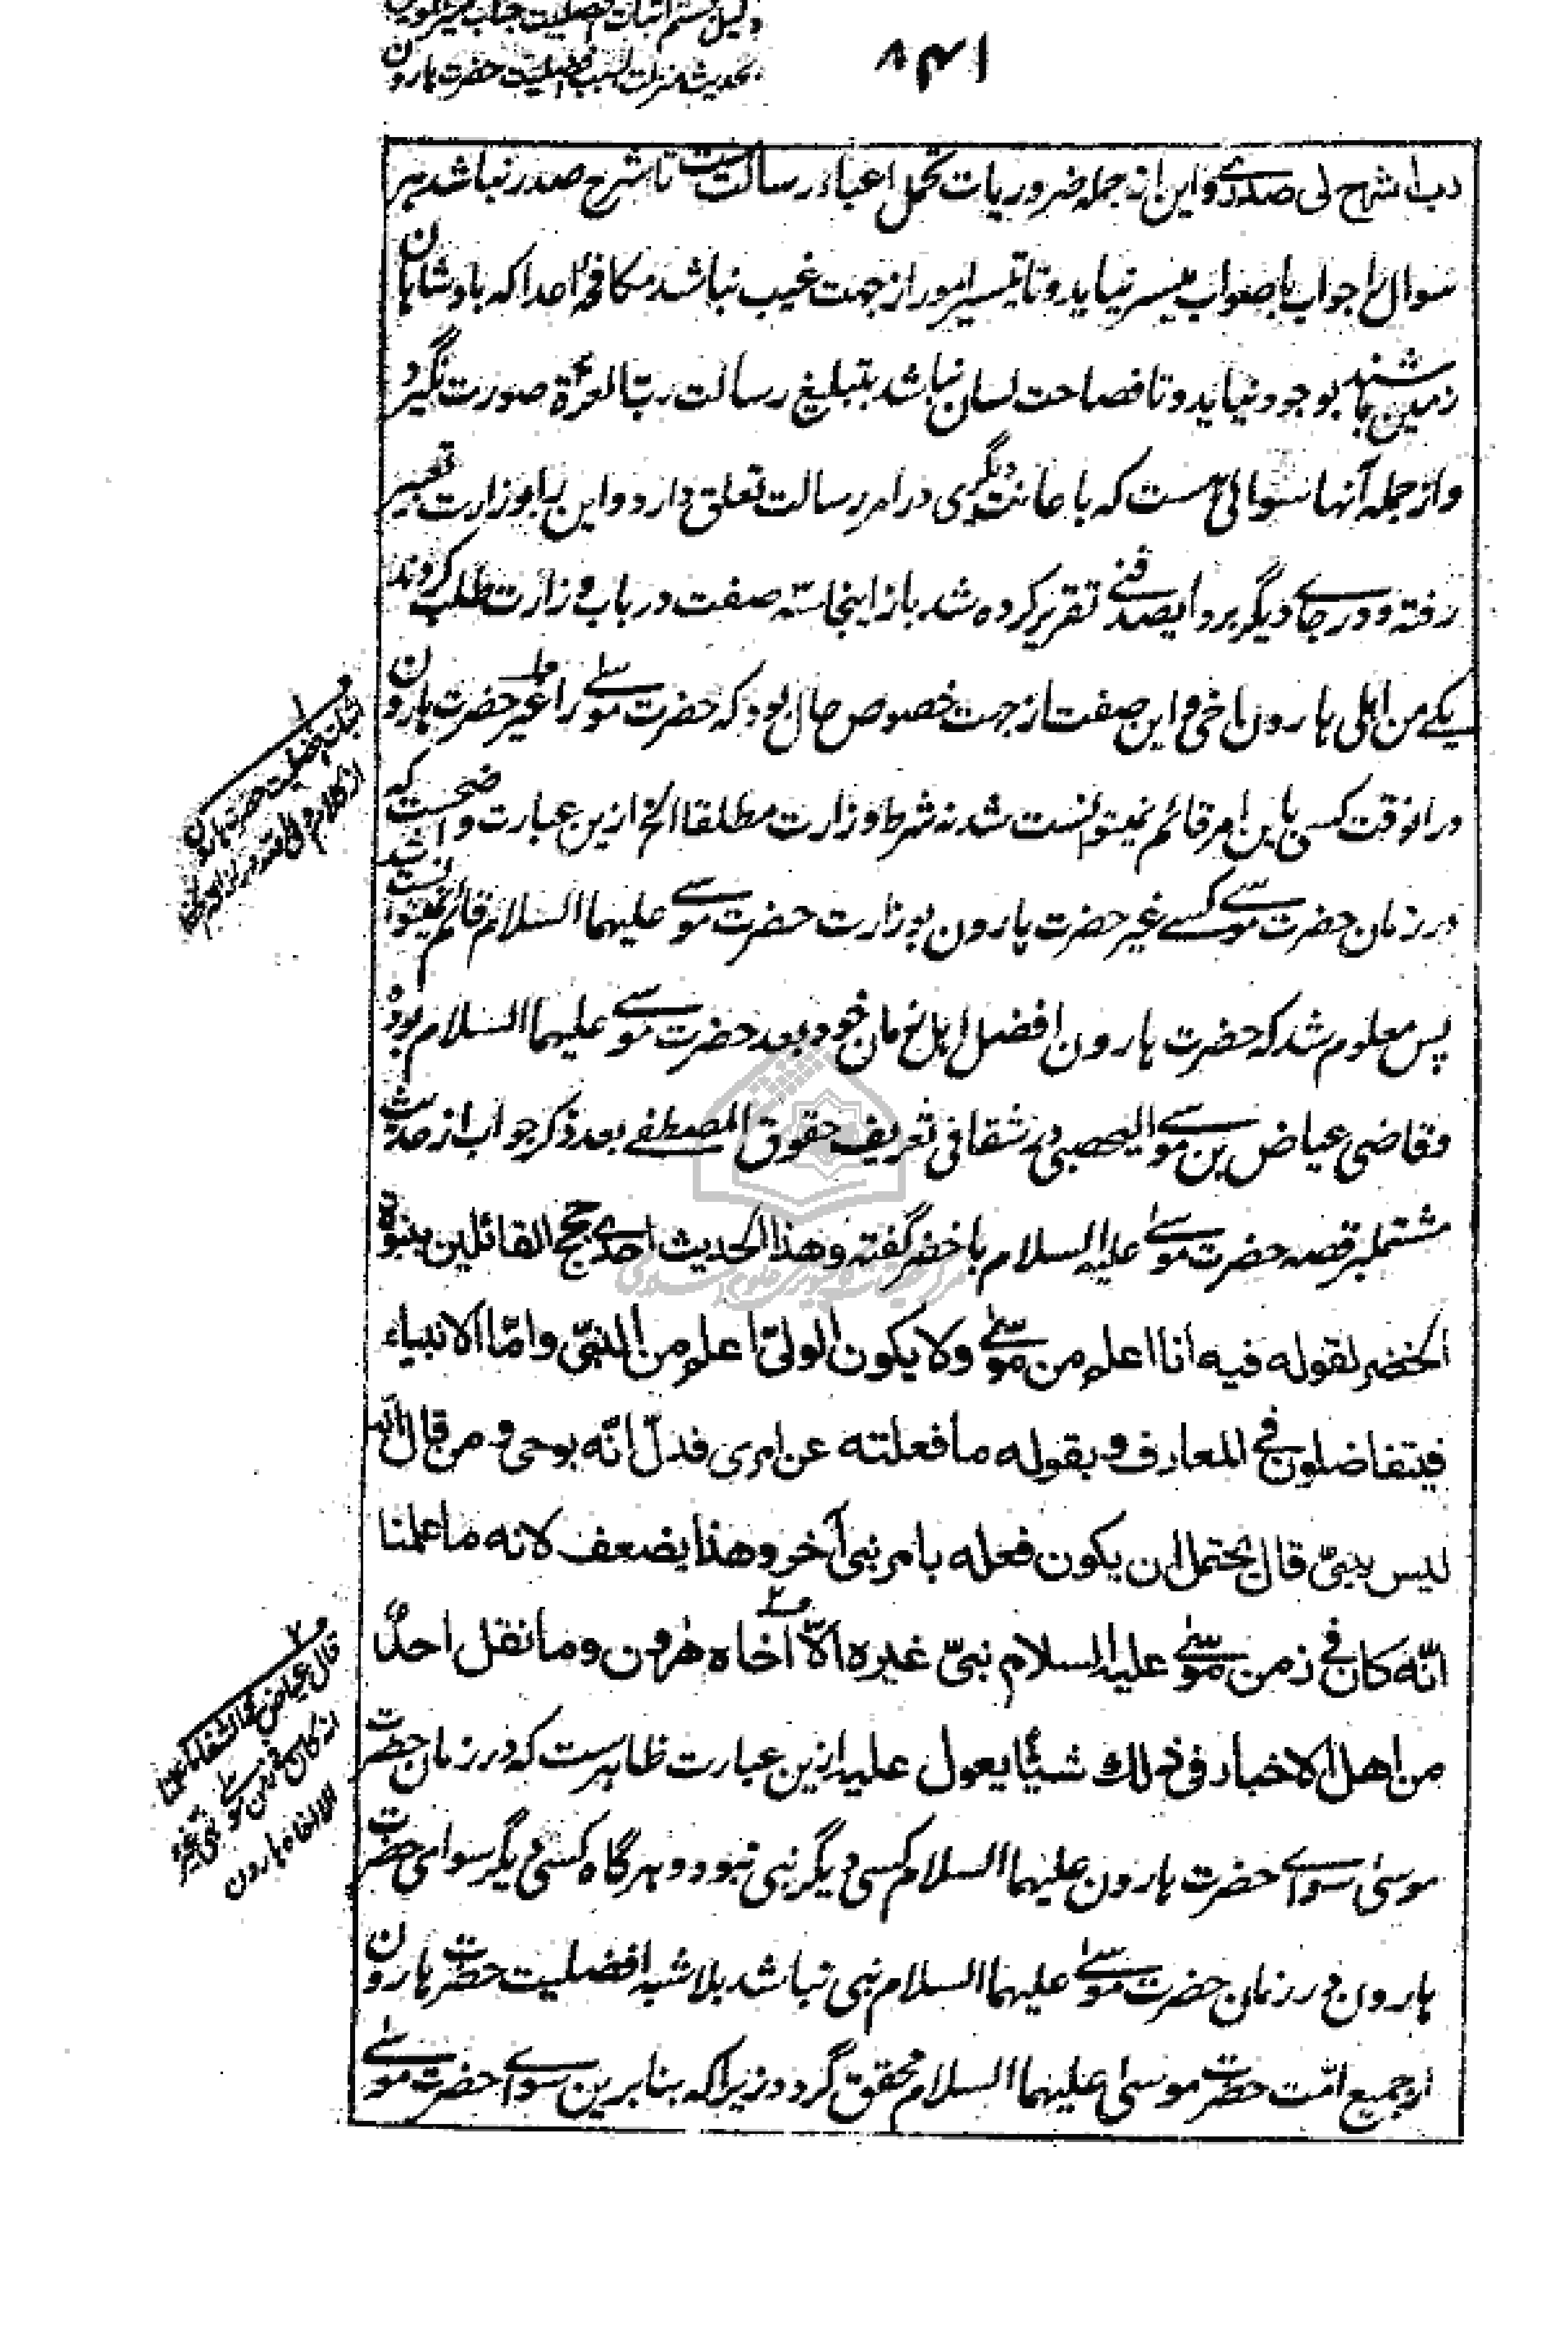 دلیل ششم اثبات افضلیت جناب امیر
بحدیث منزلت بسبب افضلیت حضرت هارون
۸۴۱
رب اشرح لی صدری و این از جمله ضروریات تحمل اعباء رسالت ست تا شرح صدر نباشد هر
سوال را جواب با صواب میسر نیاید و تا تیسیر امور از جهت غیب نباشد مکافحهٔ اعدا که بادشاهان
زمین باشند بوجود نیاید و تا فصاحت لسان نباشد بتبلیغ رسالت رب العزة صورت نگیرد
و از جمله آنها سوالی ست که باعانت دیگری در امر رسالت تعلق دارد و این را بوزارت تعبیر
رفته و در جای دیگر بردا یصدقنی تقریر کرده شد باز اینجا سه صفت در باب وزارت طلب کردند
یکی من اهلی هارون اخی و این صفت از جهت خصوص حال بود که حضرت موسی را غیر حضرت هارون
در انوقت کسی باین امر قائم نمیتوانست شد نه شرط وزارت مطلقا الخ ازین عبارت واضحست که
در زمان حضرت موسی کسی غیر حضرت هارون بوزارت حضرت موسی علیهما السلام قائم نمیتوانست شد
پس معلوم شد که حضرت هارون افضل اهل زمان خود بعد حضرت موسی علیهما السلام بود
و قاضی عیاض بن موسی الیحصبی در شفا فی تعریف حقوق المصطفی بعد ذکر جواب از حدیث
مشتملبر قصه حضرت موسی علیه السلام با خضر گفته و هذا الحدیث احدی حجج القائلین بنبوة
الخضر لقوله فیه انا اعلم من موسی ولا یکون الولیّ اعلم من النبیّ وامّا الانبیاء
فیتفاضلون فی المعارف و بقوله ما فعلته عن امری فدلّ انّه بوحی و من قال انّه
لیس بنبیّ قال یحتمل ان یکون فعله بامر نبی آخر و هذا یضعف لانه ما علمنا
انّه کان فی زمن موسی علیه السلام نبیّ غیره الّا اخاه هرون و ما نقل احدٌ
من اهل الاخبار فی ذلك شیئًا یعول علیه ازین عبارت ظاهرست که در زمان حضرت
موسی سوای حضرت هارون علیهما السلام کسی دیگر نبی نبود و هرگاه کسی دیگر سوای حضرت
هارون در زمان حضرت موسی علیهما السلام نبی نباشد بلاشبه افضلیت حضرت هارون
از جمیع امّت حضرت موسی علیهما السلام محقق گردد زیرا که بنابرین سوای حضرت موسی
۱
اثبات افضلیت حضرت هارون
۲
قال عیاض فی الشفا ما علمنا
انه کان فی زمن موسی نبی غیره
الا اخاه هارون